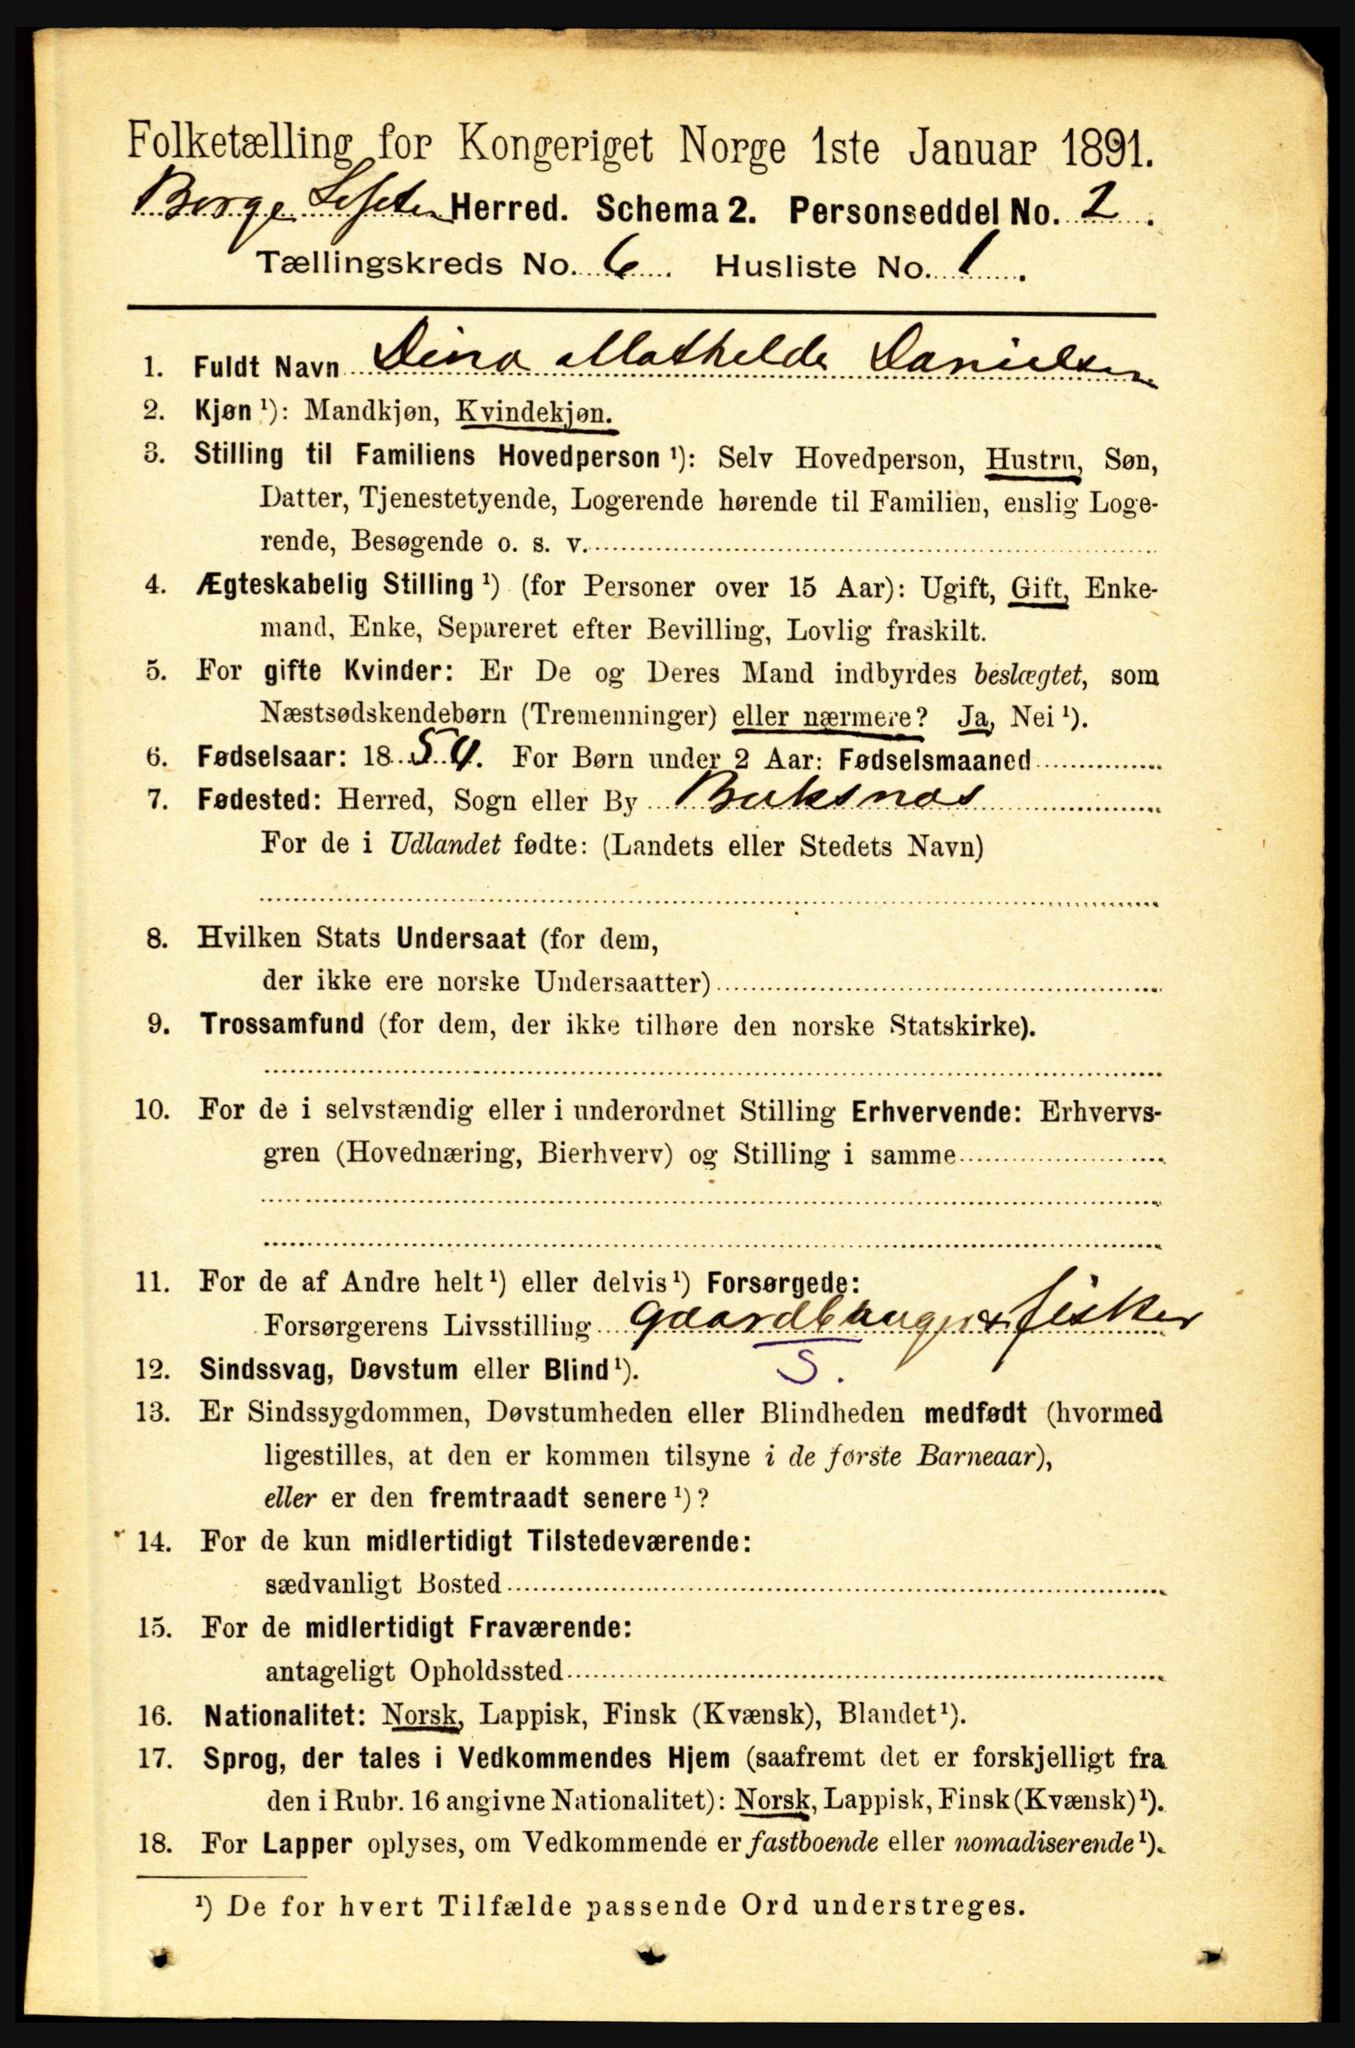 Folketælling for Kongeriget Norge 1ste Januar 1891.
Borge Lofoten Herred. Schema 2. Personseddel No. 2.
Tællingskreds No. 6. Husliste No. 1.
1. Fuldt Navn Dina Mathelde Danielsen
2. Kjøn ¹): Mandkjøn, Kvindekjøn.
3. Stilling til Familiens Hovedperson ¹): Selv Hovedperson, Hustru, Søn,
Datter, Tjenestetyende, Logerende hørende til Familien, enslig Loge-
rende, Besøgende o. s. v.
4. Ægteskabelig Stilling ¹) (for Personer over 15 Aar): Ugift, Gift, Enke-
mand, Enke, Separeret efter Bevilling, Lovlig fraskilt.
5. For gifte Kvinder: Er De og Deres Mand indbyrdes beslægtet, som
Næstsødskendebørn (Tremenninger) eller nærmere? Ja, Nei ¹).
6. Fødselsaar: 1854. For Børn under 2 Aar: Fødselsmaaned
7. Fødested: Herred, Sogn eller By Buksnæs
For de i Udlandet fødte: (Landets eller Stedets Navn)
8. Hvilken Stats Undersaat (for dem,
der ikke ere norske Undersaatter)
9. Trossamfund (for dem, der ikke tilhøre den norske Statskirke).
10. For de i selvstændig eller i underordnet Stilling Erhvervende: Erhvervs-
gren (Hovednæring, Bierhverv) og Stilling i samme
11. For de af Andre helt ¹) eller delvis ¹) Forsørgede:
Forsørgerens Livsstilling Gaardbruger & fisker
S.
12. Sindssvag, Døvstum eller Blind ¹).
13. Er Sindssygdommen, Døvstumheden eller Blindheden medfødt (hvormed
ligestilles, at den er kommen tilsyne i de første Barneaar),
eller er den fremtraadt senere ¹)?
14. For de kun midlertidigt Tilstedeværende:
sædvanligt Bosted
15. For de midlertidigt Fraværende:
antageligt Opholdssted
16. Nationalitet: Norsk, Lappisk, Finsk (Kvænsk), Blandet ¹).
17. Sprog, der tales i Vedkommendes Hjem (saafremt det er forskjelligt fra
den i Rubr. 16 angivne Nationalitet): Norsk, Lappisk, Finsk (Kvænsk) ¹).
18. For Lapper oplyses, om Vedkommende er fastboende eller nomadiserende ¹).
¹) De for hvert Tilfælde passende Ord understreges.